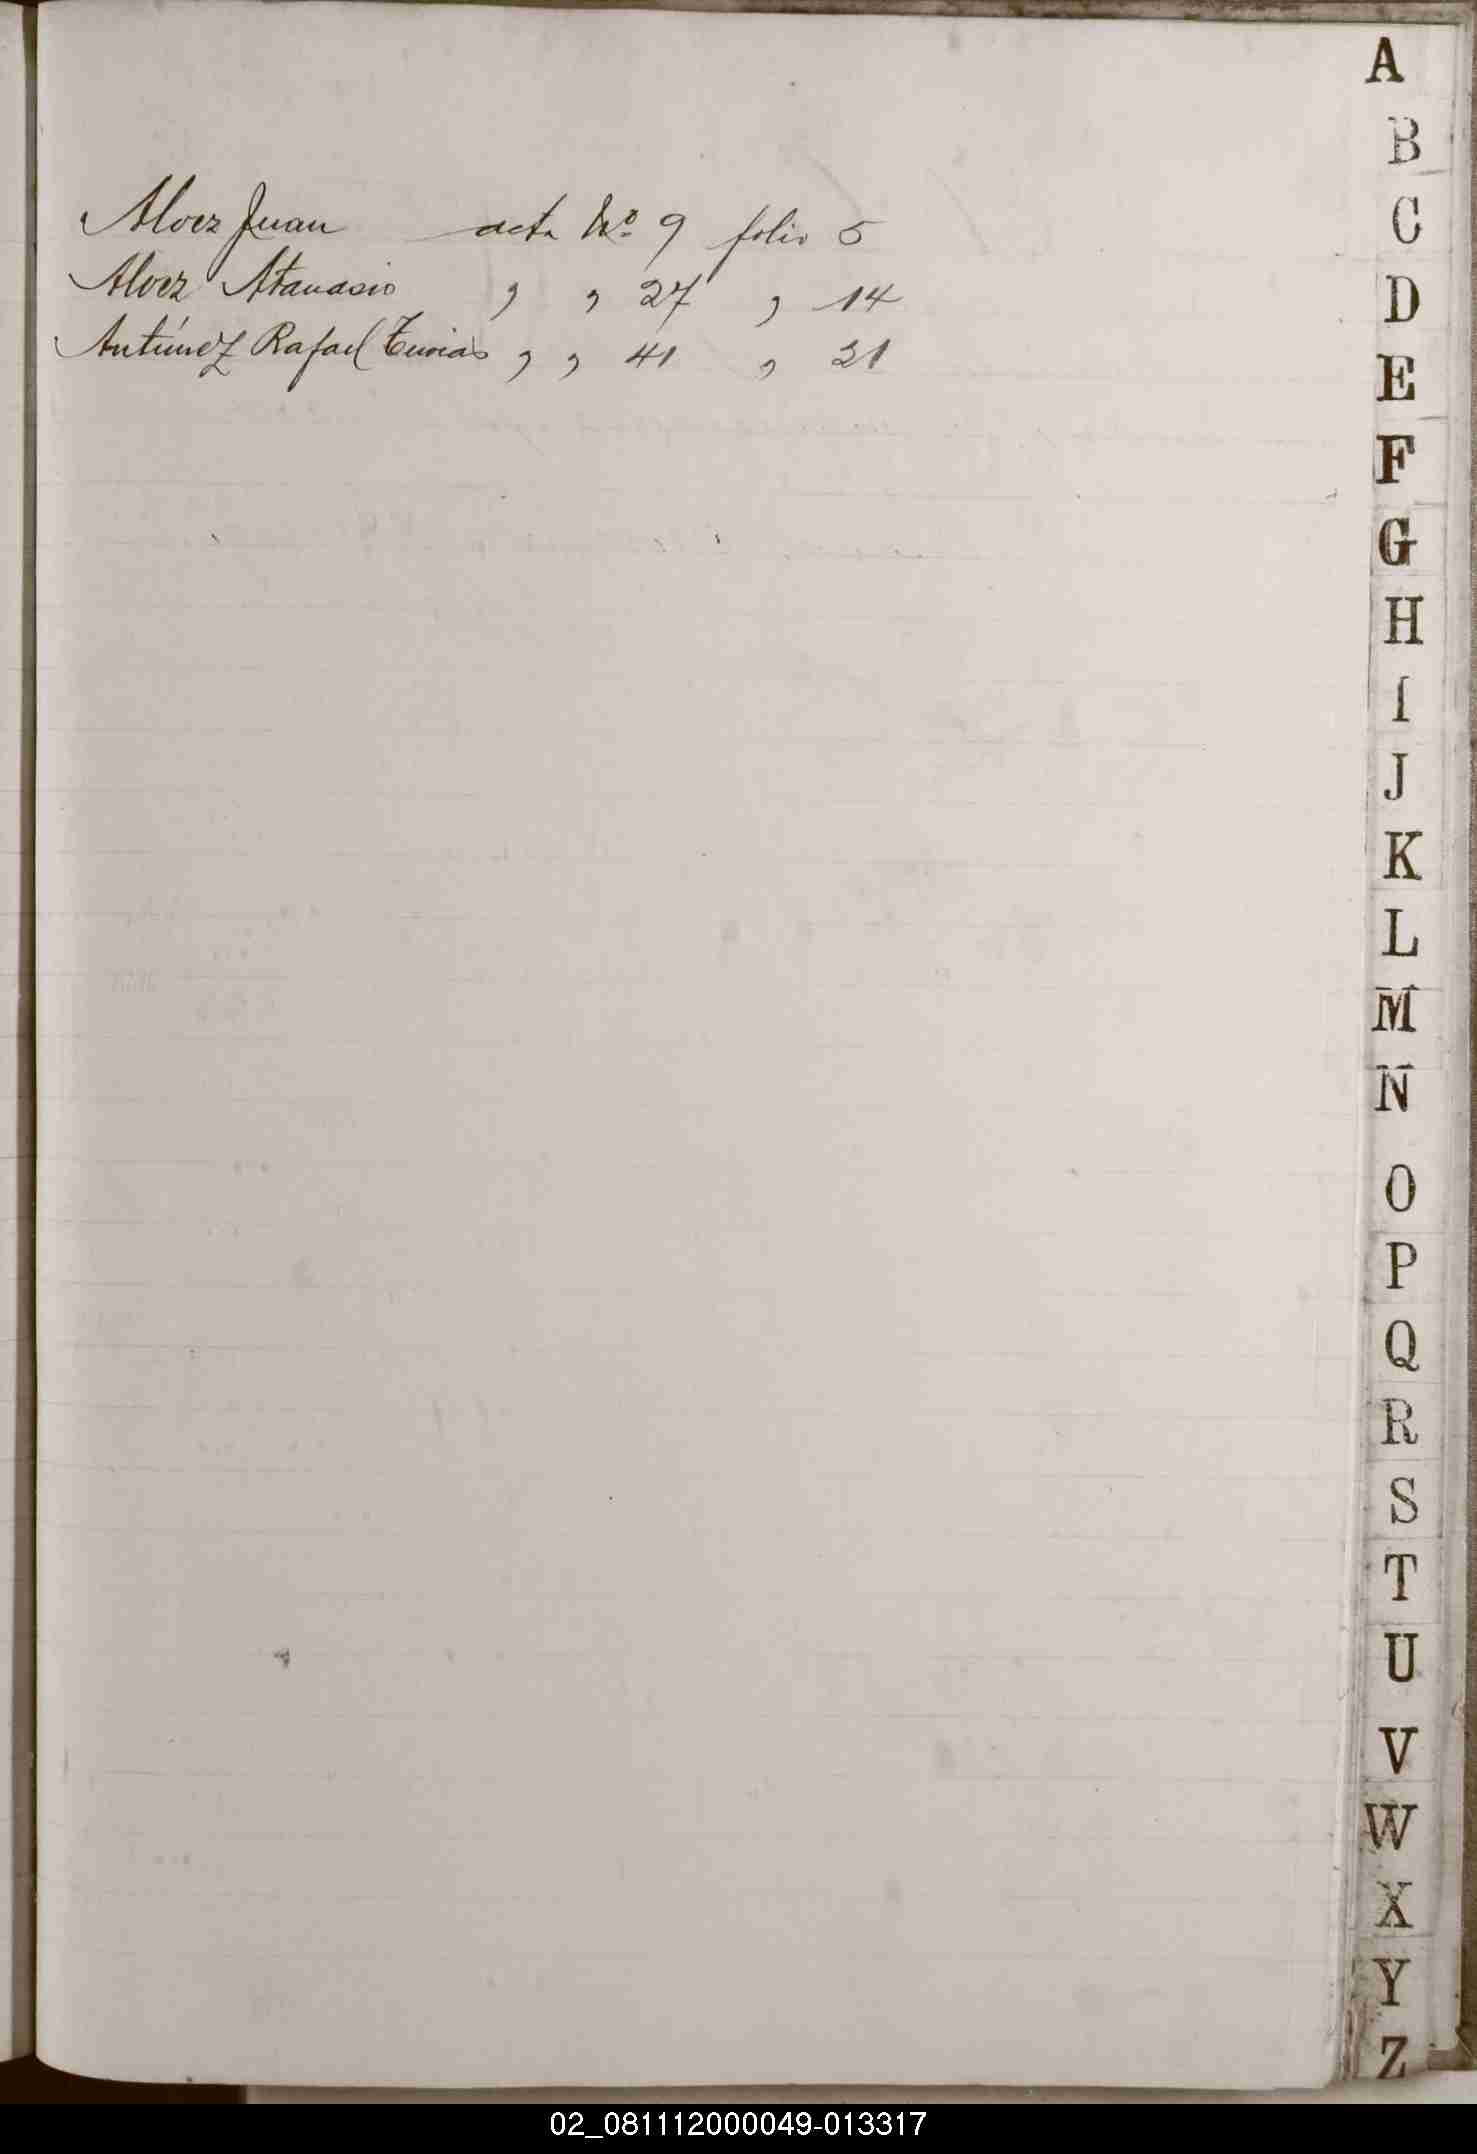 Alvez Juan acta Nº 9 folio 5
Alvez Atanasio , , 27 , 14
Antúnez Rafael , , 41 , 21
A
B
C
D
E
F
G
H
I
J
K
L
M
N
O
P
Q
R
S
T
U
V
W
X
Y
Z
02_081112000049-013317